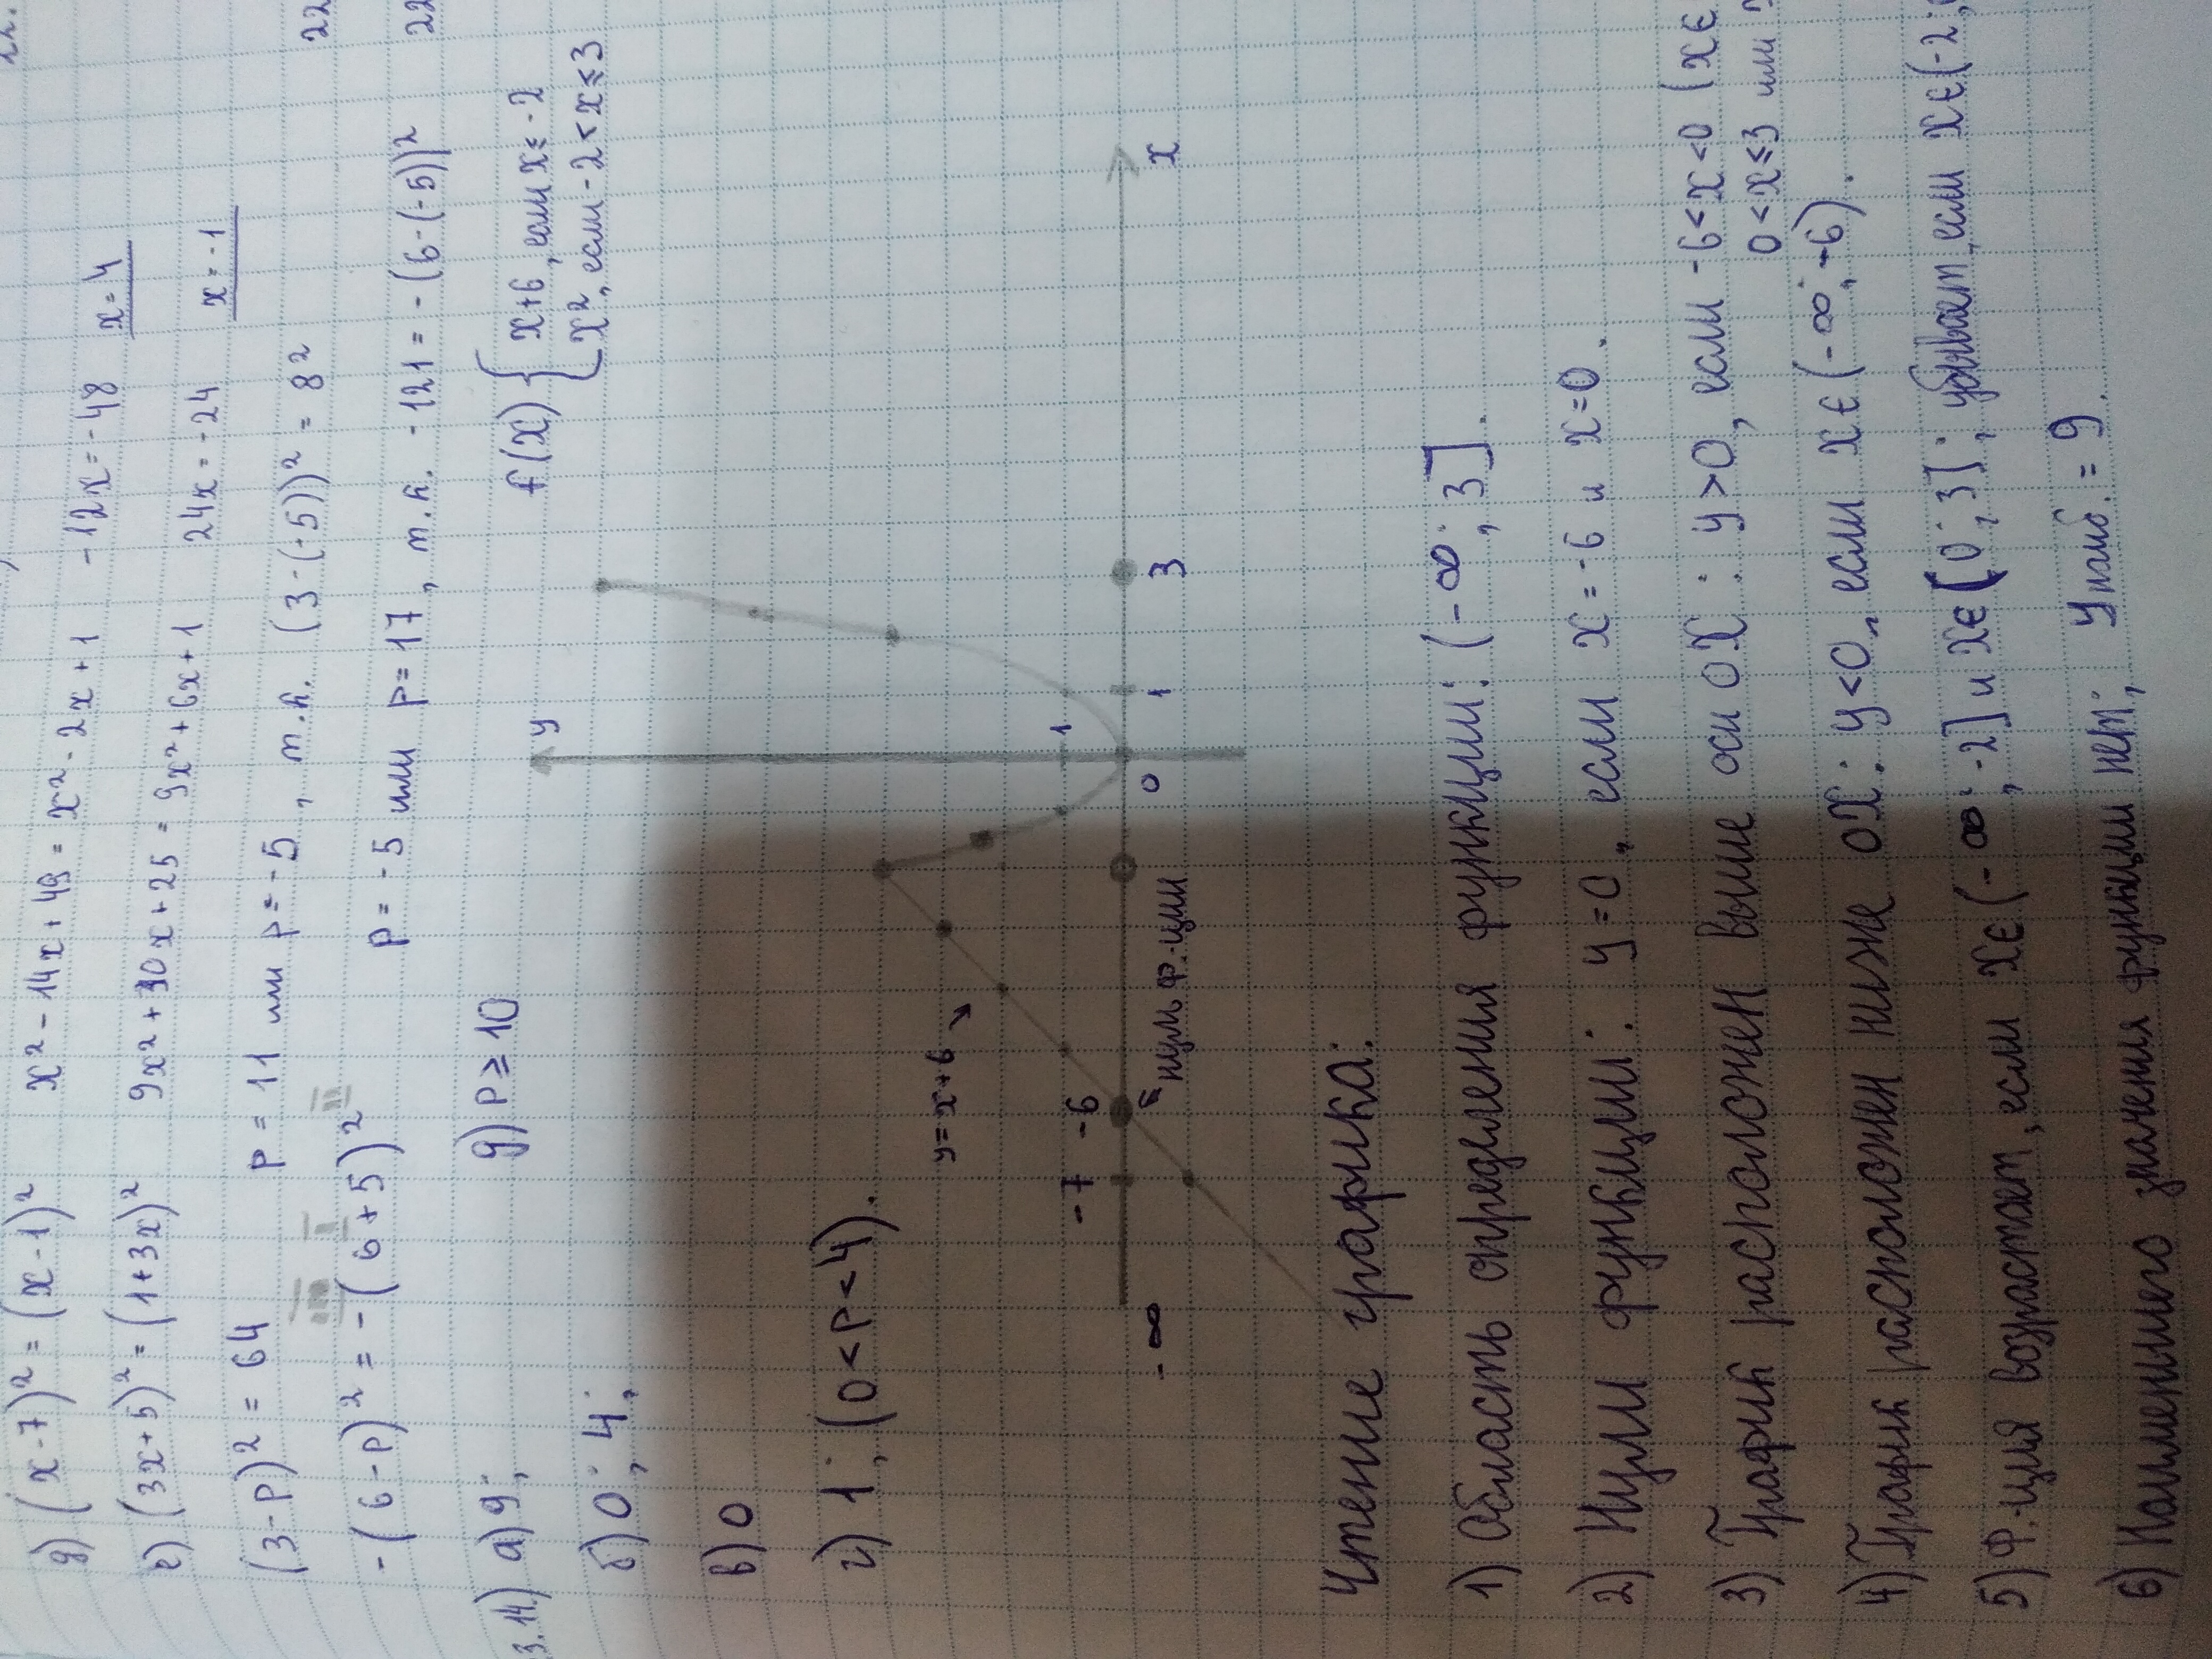 д) (x-7)² = (x-1)² x² - 14x + 49 = x² - 2x + 1 -12x = -48 x = 4
е) (3x+5)² = (1+3x)² 9x² + 30x + 25 = 9x² + 6x + 1 24x = -24 x = -1
(3-p)² = 64 p = 11 или p = -5, т.к. (3-(-5))² = 8² 22
-(6-p)² = -(6+5)² p = -5 или p = 17, т.к. -121 = -(6-(-5))² 22
3.14.) а) 9; д) p ≥ 10 f(x) { x+6, если x ≤ -2
x², если -2 < x ≤ 3
б) 0; 4;
в) 0
г) 1; (0 < p < 4).
y
y = x+6
1
-∞ -7 -6 0 1 3 x
нуль ф.ции
Чтение графика:
1) Область определения функции: (-∞; 3].
2) Нули функции: y=0, если x=-6 и x=0.
3) График расположен выше оси OX: y>0, если -6<x<0 (x∈
0<x≤3 или
4) График расположен ниже OX: y<0, если x∈(-∞;-6).
5) Ф.ция возрастает, если x∈(-∞;-2] и x∈(0;3]; убывает, если x∈(-2;
6) Наименьшего значения функции нет; yнаиб. = 9.